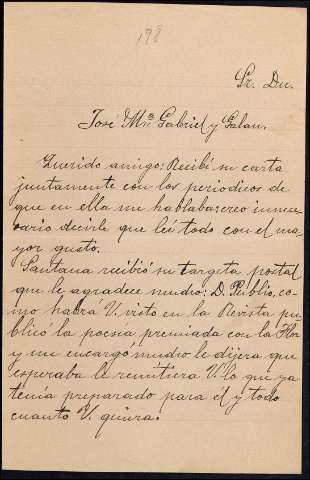 198
Sr. Dn.
José Mª Gabriel y Galan.
Querido amigo: Recibí su carta
juntamente con los periodicos de
que en ella me hablaba; creo innece-
sario decirle que leí todo con el ma-
yor gusto.
Santana recibió su targeta postal
que le agradece mucho: D. Publio, co-
mo habrá V. visto en la Revista pu-
blicó la poesia premiada con la Flor
y me encargó mucho le dijera que
esperaba le remitiera V. lo que ya
tenía preparado para él y todo
cuanto V. quiera.